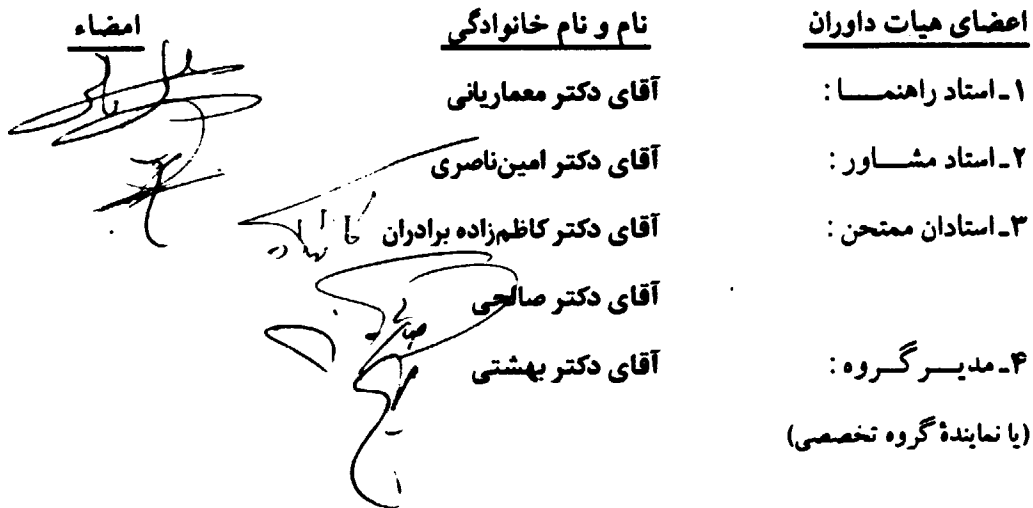 اعضای هیات داوران نام و نام خانوادگی امضاء
۱ـ استاد راهنمـــا : آقای دکتر معماریانی
۲ـ استاد مشـــاور : آقای دکتر امین‌ناصری
۳ـ استادان ممتحن : آقای دکتر کاظم‌زاده برادران
آقای دکتر صالحی
۴ـ مدیـــر گـــروه : آقای دکتر بهشتی
(یا نمایندهٔ گروه تخصصی)